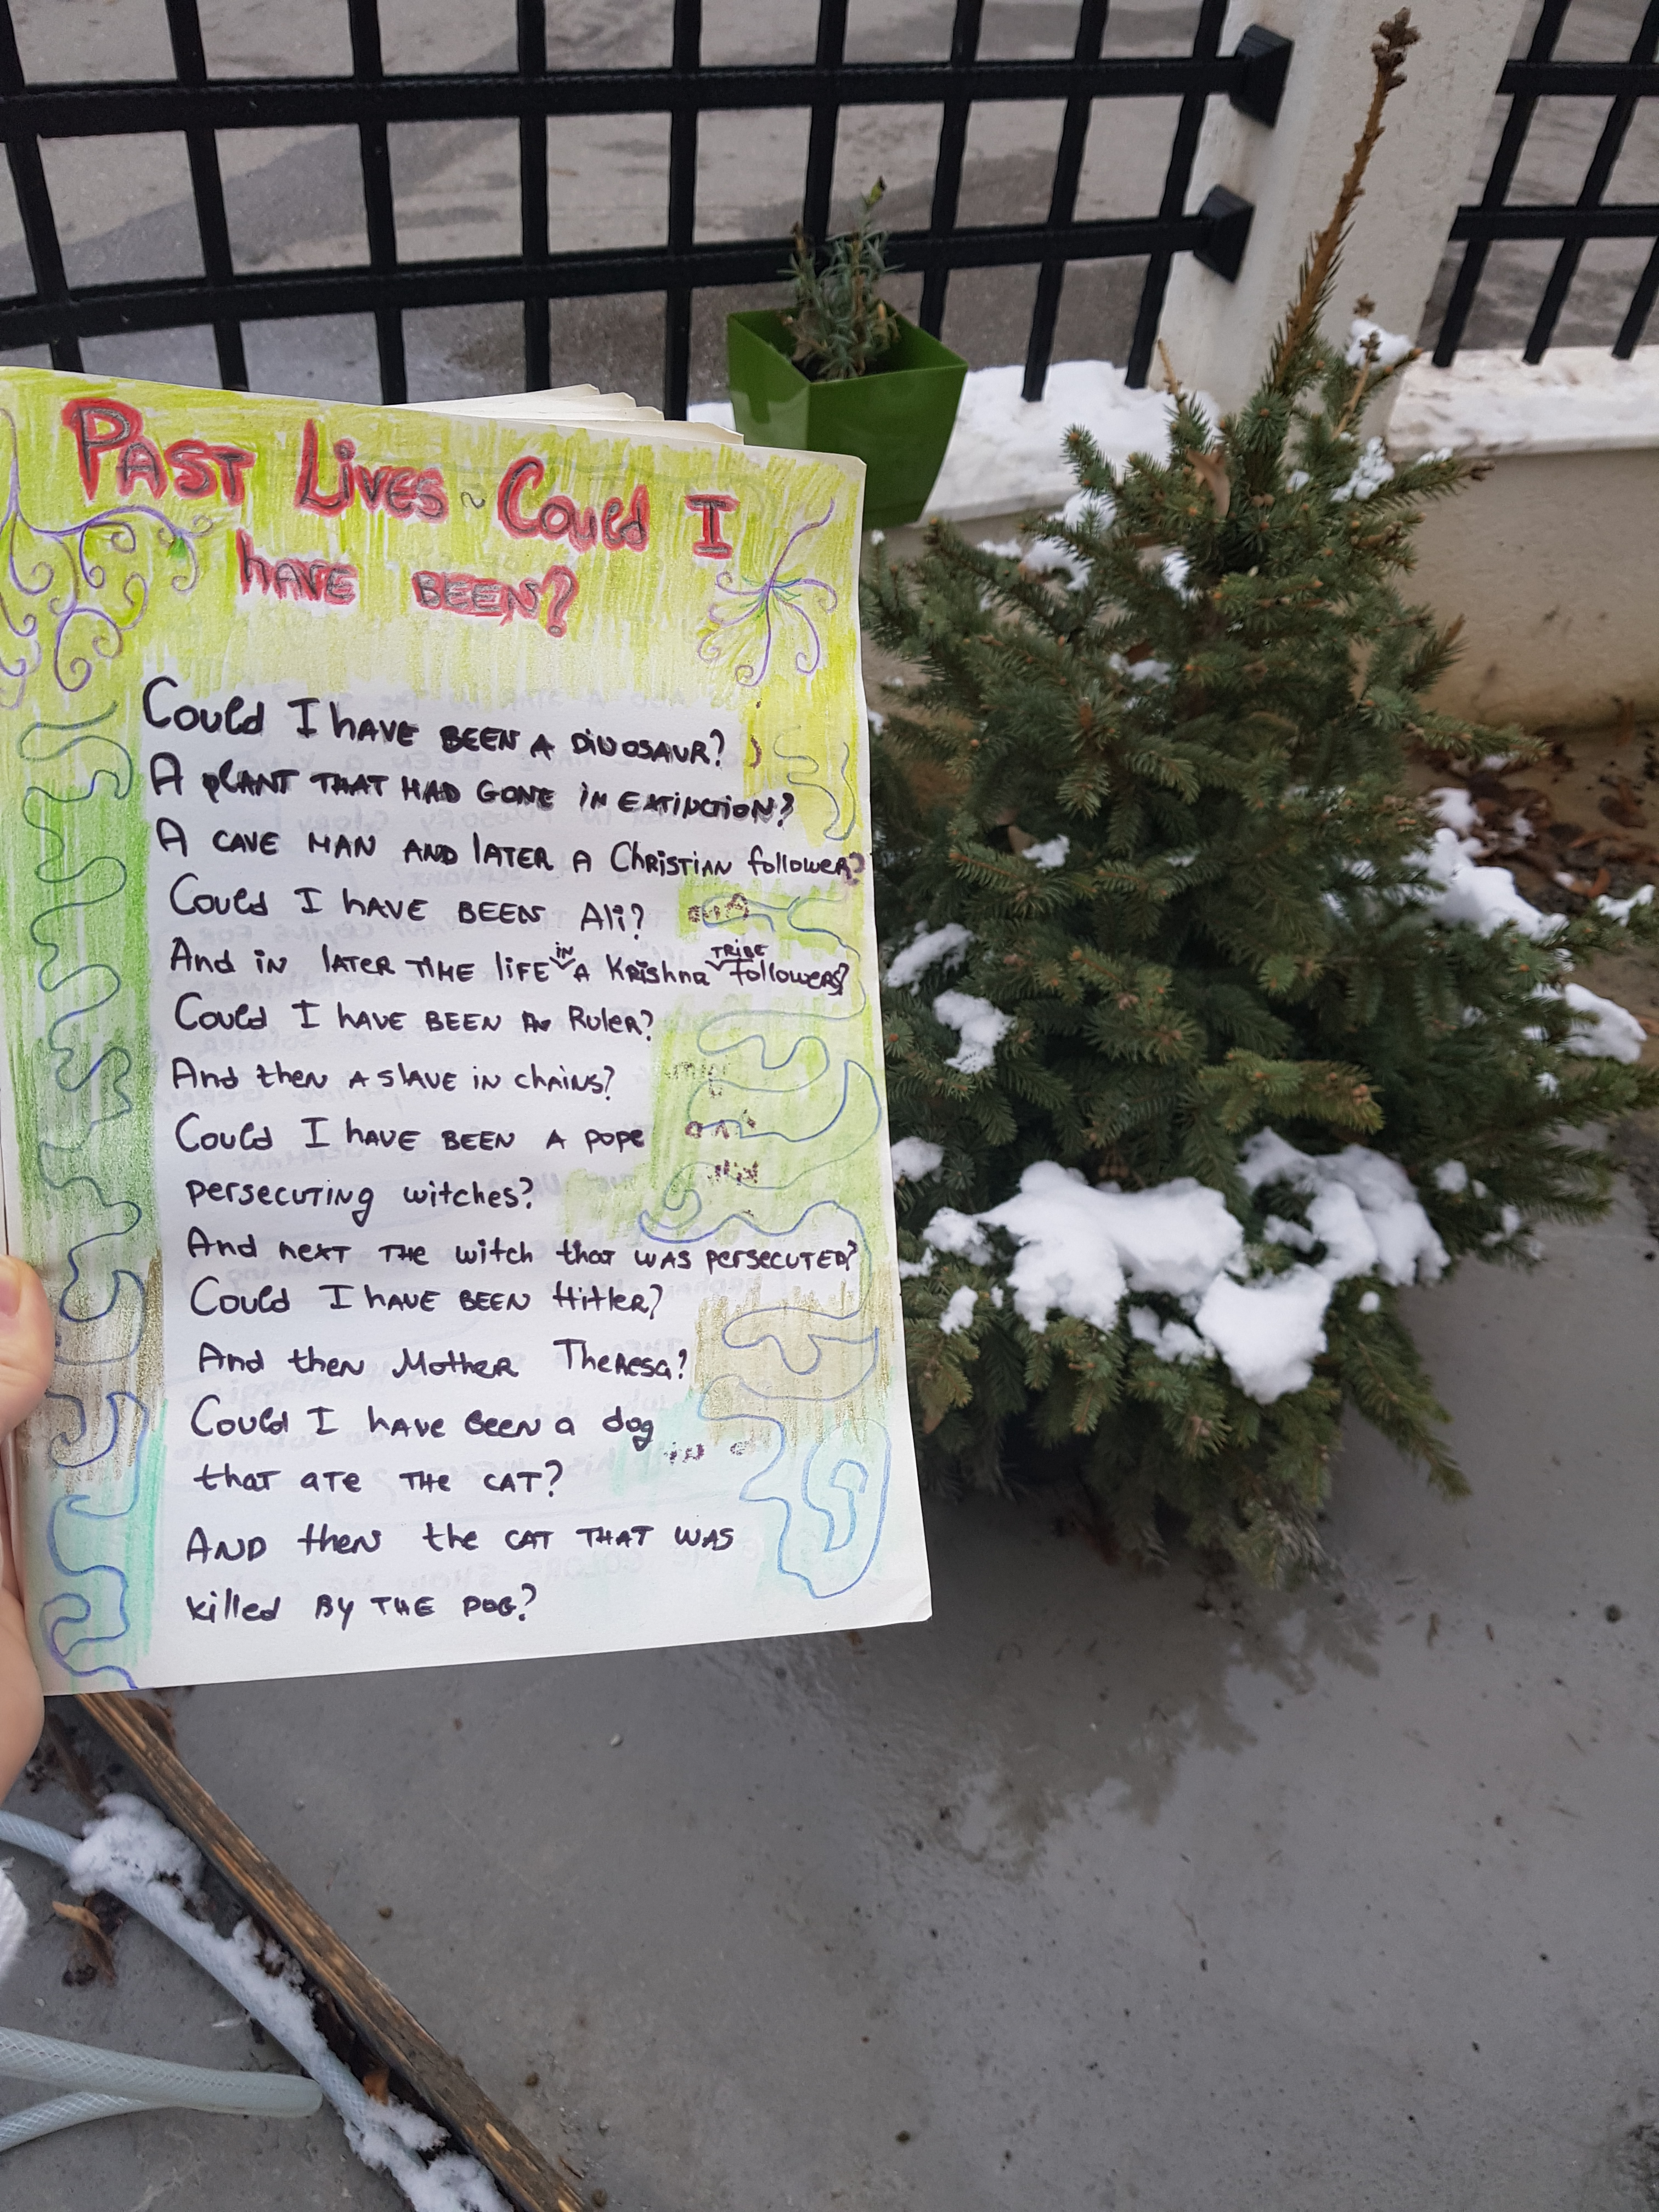 PAST LIVES ~ Could I
HAVE BEEN?
Could I HAVE BEEN A DINOSAUR?
A PLANT THAT HAD GONE IN EXTINCTION?
A CAVE MAN AND LATER A Christian follower?
Could I HAVE BEEN Ali?
And in LATER TIME life in A Krishna TRIBE followers?
Could I HAVE BEEN A Ruler?
And then A SLAVE in chains?
Could I HAVE BEEN A POPE
persecuting witches?
And next THE witch that WAS persecuted?
Could I HAVE BEEN Hitler?
And then Mother Theresa?
Could I have Been a dog
that ate THE CAT?
AND then the CAT THAT WAS
killed By THE DOG?